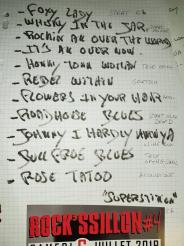 - FOXY LADY
- WHISKY IN THE JAR
- ROCKIN ALL OVER THE WORLD
- IT'S ALL OVER NOW
- HONKY TONK WOMAN
- REBEL WITHIN
- FLOWERS IN YOUR HAIR
- ROADHOUSE BLUES
- JOHNNY I HARDLY KNEW YA
- BULL FROG BLUES
- ROSE TATOO
"SUPERSTITION"
ROCK'SSILLON#4
SAMEDI 6 JUILLET 2019